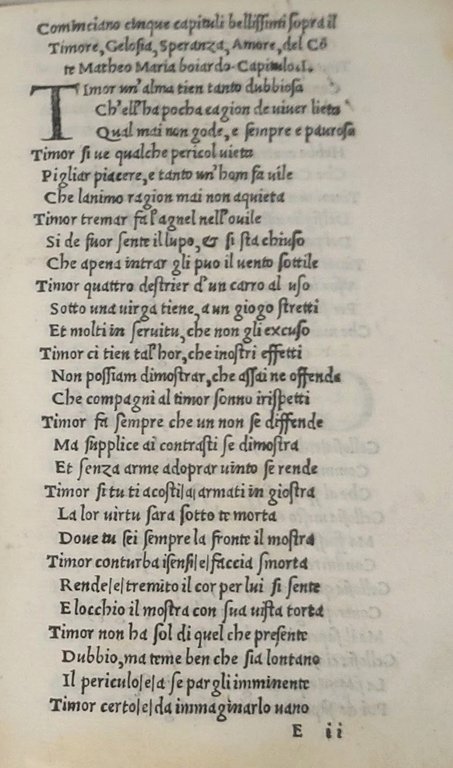 Cominciano cinque capituli bellissimi sopra il
Timore, Gelosia, Speranza, Amore, del Cō
te Matheo Maria boiardo. Capitulo. I.
Timor un'alma tien tanto dubbiosa
Ch'ell'ha pocha cagion de uiuer lieta
Qual mai non gode, e sempre e paurosa
Timor si ue qualche pericol uieta
Pigliar piacere, e tanto un'hom fa uile
Che lanimo ragion mai non aquieta
Timor tremar fa l'agnel nell'ouile
Si de fuor sente il lupo, & si sta chiuso
Che apena intrar gli puo il uento sottile
Timor quattro destrier d'un carro al uso
Sotto una uirga tiene, a un giogo stretti
Et molti in seruitu, che non gli excuso
Timor ci tien tal'hor, che inostri effetti
Non possiam dimostrar, che assai ne offende
Che compagni al timor sonno irispetti
Timor fa sempre che un non se diffende
Ma supplice ai contrasti se dimostra
Et senza arme adoprar uinto se rende
Timor si tu ti acosti|a|armati in giostra
La lor uirtu sara sotto te morta
Doue tu sei sempre la fronte il mostra
Timor conturba isensi|e|faccia smorta
Rende|e|tremũto il cor per lui si sente
E locchio il mostra con sua uista torta
Timor non ha sol di quel che presente
Dubbio, ma teme ben che sia lontano
Il periculo|e|a se par gli imminente
Timor certo|e|da immaginarlo uano
E ii